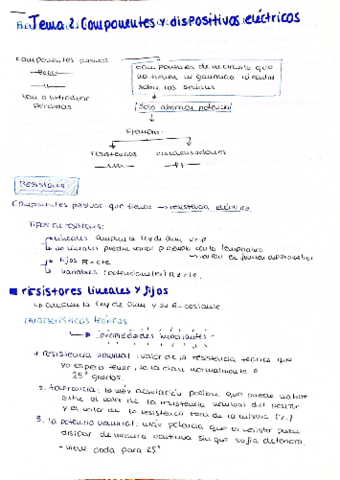 Tema 2. Componentes y dispositivos eléctricos
Componentes pasivos
componentes de circuito que
no tienen ni ganancia ni
sobre las señales
van a introducir
pérdidas
Solo absorben potencia
Ejemplo:
resistencias
condensadores
Resistores
Componentes pasivos que tienen → resistencia eléctrica
Tipos de resistores:
lineales cumplen la ley de Ohm
no lineales pueden variar por ejemplo con la temperatura
varían en función
Fijos R = cte
Variables (potenciómetros) R ≠ cte.
■ resistores lineales y fijos
cumplen la ley de Ohm y su R = constante
características técnicas
propiedades importantes
1. resistencia nominal: valor de la resistencia teórica que
yo espero tener, se la dan normalmente a
25º grados.
2. tolerancia: la más desviación posible que puede haber
entre el valor de la resistencia nominal del resistor
y el valor de la resistencia real de la misma (%)
3. la potencia nominal: máx potencia que el resistor puede
disipar de manera continua sin que sufra deterioro.
- viene dada para 25º